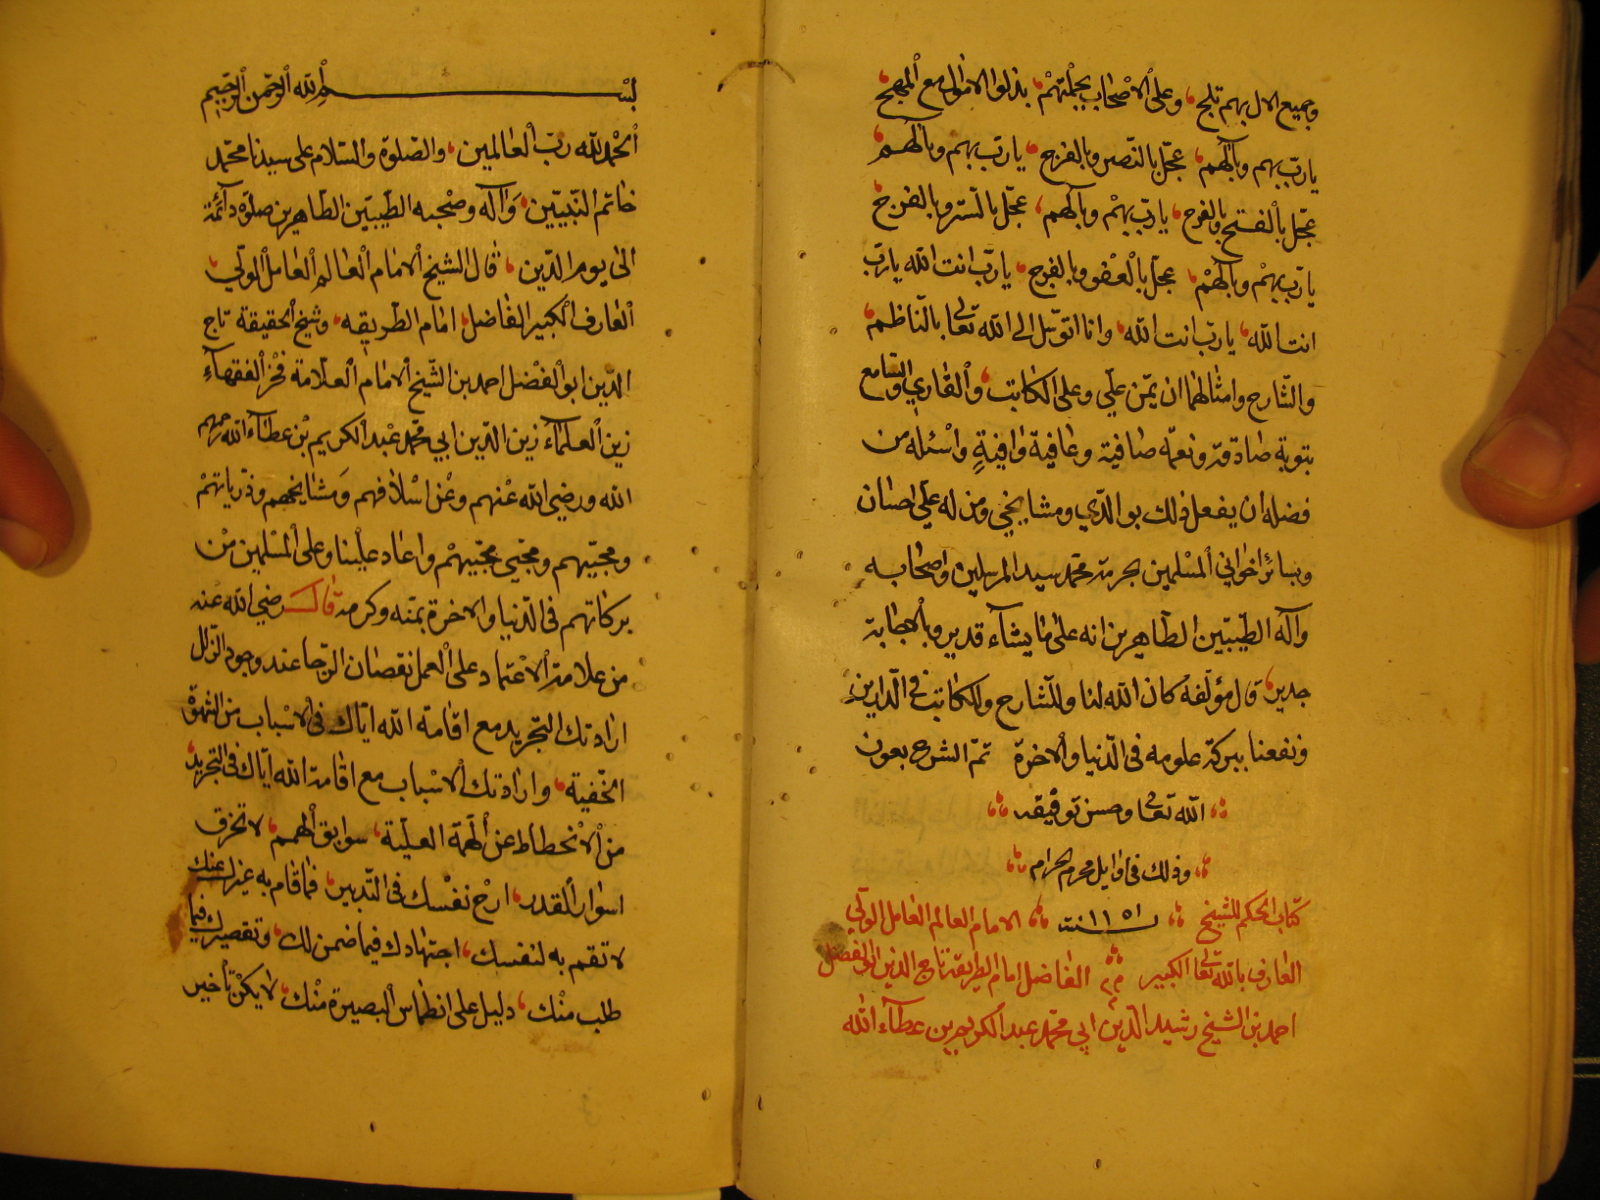 وجميع الال بهم تلج وعلى الاصحاب بجملتهم بذلوا الاموال مع المهج
يارب بهم وبآلهم عجل بالنصر وبالفرج يارب بهم وبآلهم
عجل بالفتح وبالفرج يارب بهم وبآلهم عجل بالستر وبالفرج
يارب بهم وبآلهم عجل بالعفو وبالفرج يارب انت الله يارب
انت الله يارب انت الله وانا اتوسل الى الله تعالى بالناظم
والشارح وامثالهما ان يمن علي وعلى الكاتب والقاري والسامع
بتوبة صادقة ونعمة صافية وعافية وافية واسئله من
فضله ان يفعل ذلك بوالدي ومشايخي ومن له علي احسان
وبسائر اخواني المسلمين بحرمة محمد سيد المرسلين واصحابه
وآله الطيبين الطاهرين انه على ما يشاء قدير وبالاجابة
جدير قال مؤلفه كان الله لنا وللشارح وللكاتب في الدارين
ونفعنا ببركة علومه في الدنيا والاخرة تم الشرح بعون
الله تعالى وحسن توفيقه
وذلك في اوايل محرم الحرام
كتاب الحكم للشيخ سنة ١١٥١ الامام العالم العامل الولي
العارف بالله تعالى الكبير الفاضل امام الطريقة تاج الدين ابي الفضل
احمد بن الشيخ رشيد الدين ابي محمد عبد الكريم بن عطاء الله
بسم الله الرحمن الرحيم
الحمد لله رب العالمين والصلوة والسلام على سيدنا محمد
خاتم النبيين وآله وصحبه الطيبين الطاهرين صلوة دائمة
الى يوم الدين قال الشيخ الامام العالم العامل الولي
العارف الكبير الفاضل امام الطريقه وشيخ الحقيقة تاج
الدين ابو الفضل احمد بن الشيخ الامام العلامة فخر الفقهاء
زين العلماء زين الدين ابي محمد عبد الكريم بن عطاء الله رحمهم
الله ورضي الله عنهم وعن اسلافهم ومشايخهم وذرياتهم
ومحبيهم ومحبي محبيهم واعاد علينا وعلى المسلمين من
بركاتهم في الدنيا والاخرة بمنه وكرمه قال رضي الله عنه
من علامة الاعتماد على العمل نقصان الرجا عند وجود الزلل
ارادتك التجريد مع اقامة الله اياك في الاسباب من الشهوة
الخفية وارادتك الاسباب مع اقامة الله اياك في التجريد
من الانحطاط عن الهمة العلية سوابق الهمم لا تخرق
اسوار القدر ارح نفسك في التدبير فما قام به غيرك عنك
لا تقم به لنفسك اجتهادك فيما ضمن لك وتقصيرك فيما
طلب منك دليل على انطماس البصيرة منك لا يكن تأخير